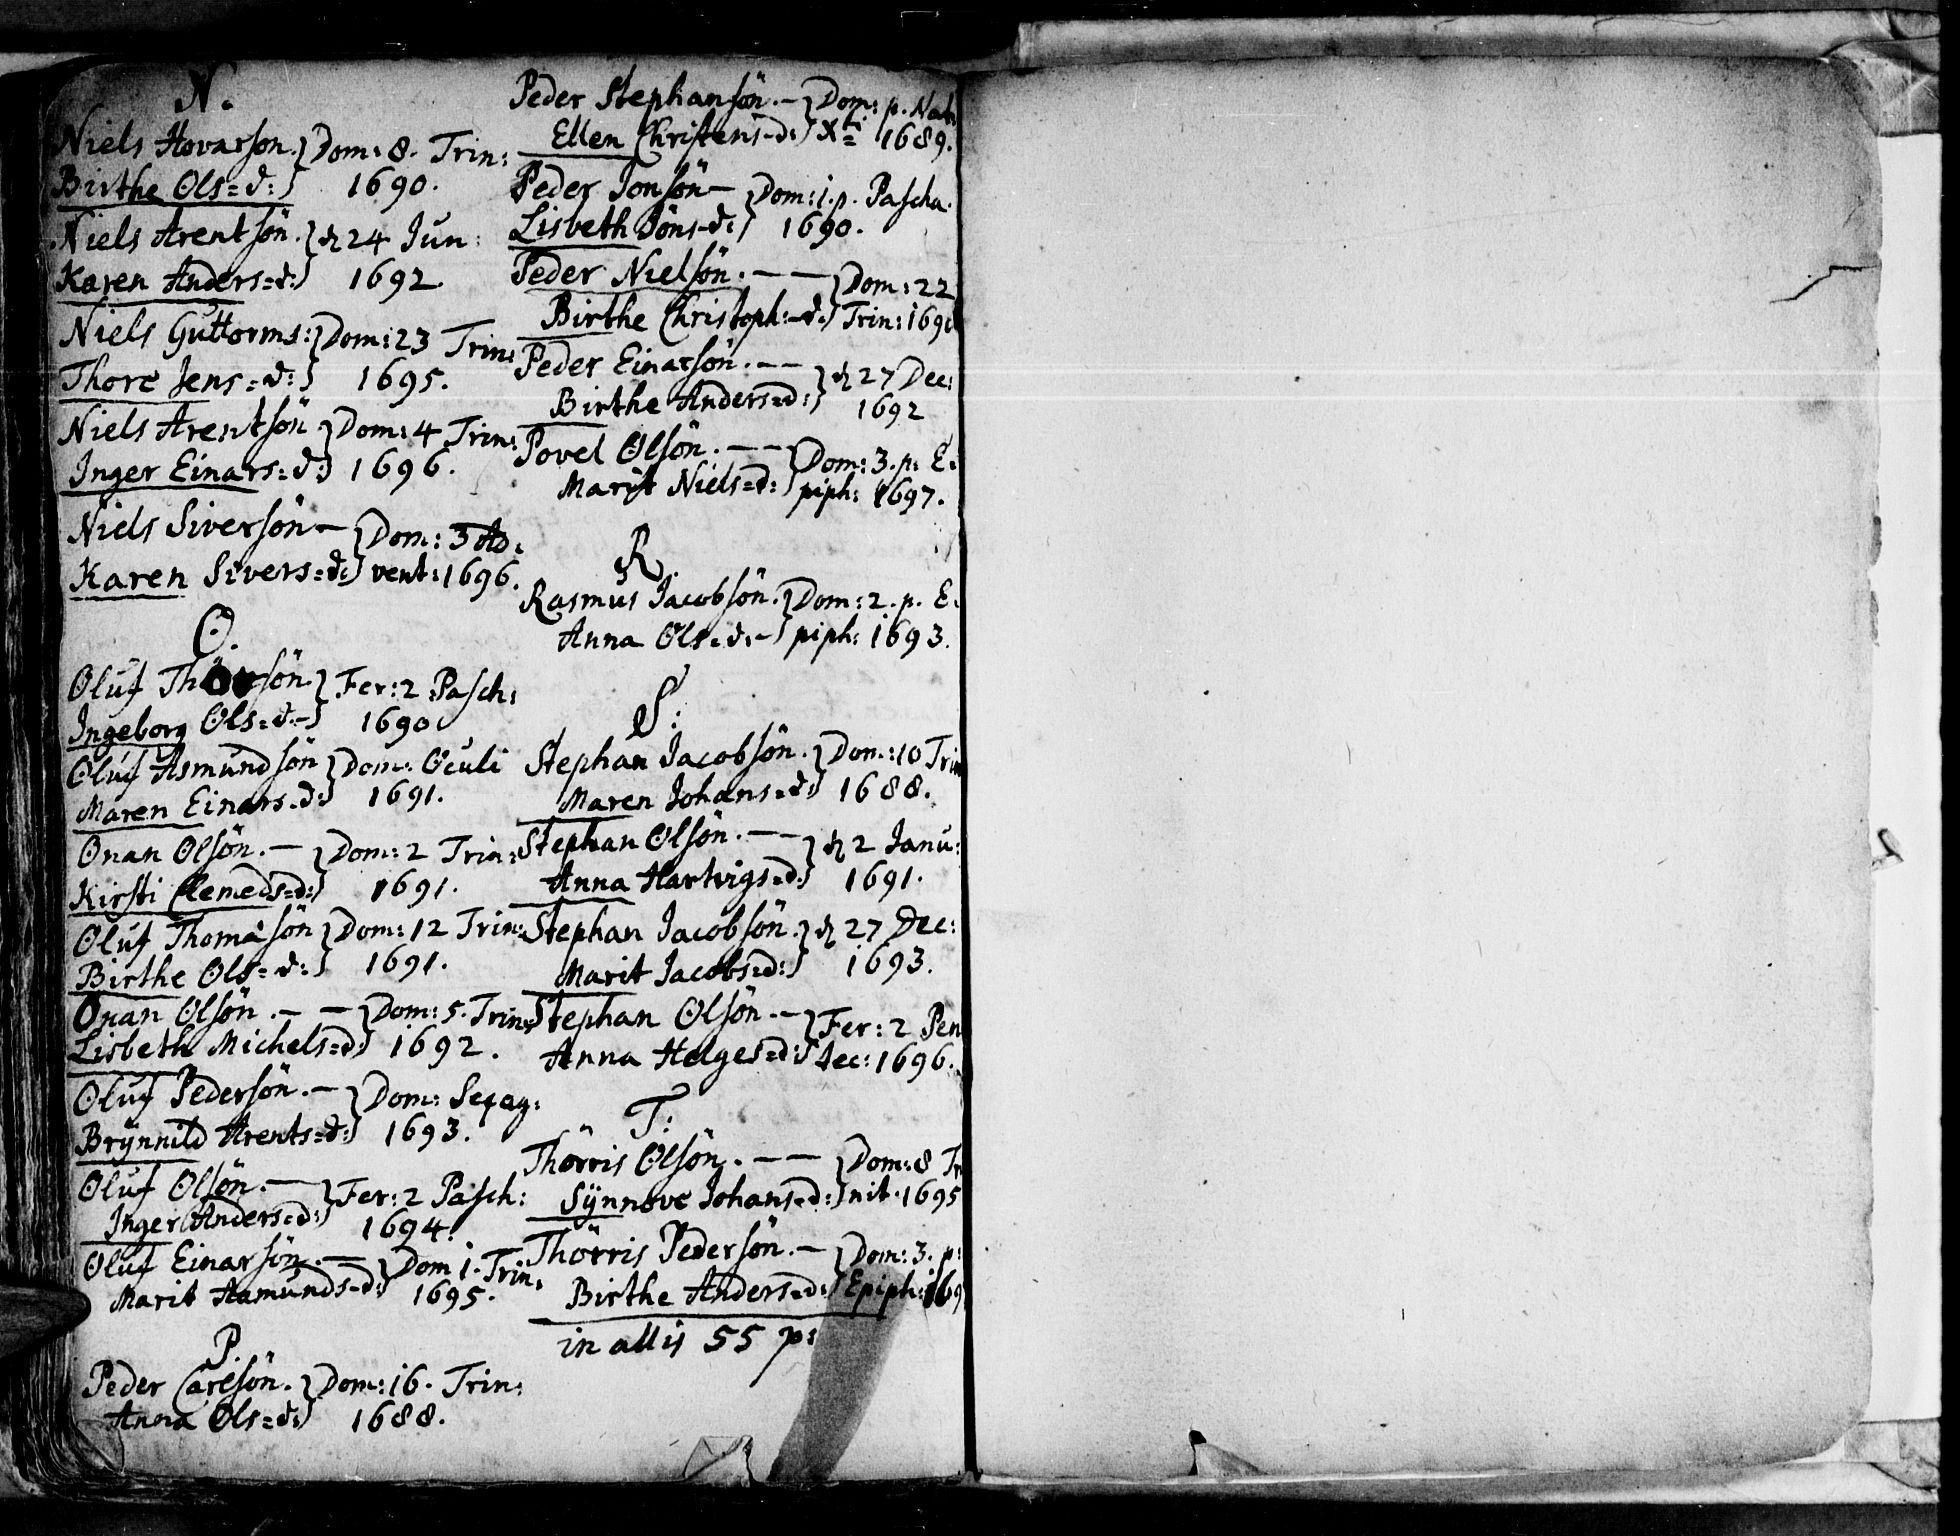 N.
Niels Hovarson. } Dom: 8. Trin:
Birthe Ols=d: } 1690.
Niels Arentsön. } d 24 Jun:
Karen Anders=d: } 1692.
Niels Guttorms: } Dom: 23 Trin:
Thore Jens=d: } 1695.
Niels Arentsön } Dom: 4 Trin:
Inger Einars=d: } 1696.
Niels Siversön — } Dom: 3 Ad:
Karen Sivers=d: } vent: 1696.
O.
Oluf } Fer: 2 Pasch:
Ingeborg Ols=d.- } 1690
Oluf Asmundsön } Dom: Oculi
Maren Einars=d: } 1691.
Onan Olsön. — } Dom: 2 Trin:
Kirsti Clemeds=d: } 1691.
Oluf Thomasön } Dom: 12 Trin:
Birthe Ols=d: } 1691.
Onan Olsön. — — } Dom: 5. Trin:
Lisbeth Michels=d: } 1692.
Oluf Pedersön. — } Dom:
Brÿnnild Arents=d: } 1693.
Oluf Olsön. — } Fer: 2 Pasch:
Inger Anders=d: } 1694.
Oluf Einarsön. — } Dom 1. Trin:
Marit Asmunds=d: } 1695.
P.
Peder Carlsön. } Dom: 16. Trin:
Anna Ols=d: } 1688.
Peder Stephansön. — } Dom: p. Nat:
Ellen Christens=d: } Xti 1689.
Peder Jonsön — } Dom: 1. p. Pascha.
Lisbeth Jöns=d: } 1690.
Peder Nielsön. — — } Dom: 22
Birthe Christoph:=d: } Trin: 169
Peder Einarsön. — — } d 27 Dec:
Birthe Anders=d: } 1692
Povel Olsön. — — } Dom: 3. p. E.
Marit Niels=d: } piph: 1697.
R.
Rasmus Jacobsön. } Dom: 2. p. E.
Anna Ols=d:- } piph: 1693.
S:
Stephan Jacobsön. } Dom: 10 Trin
Maren Johans=d: } 1688.
Stephan Olsön. — — } d 2 Janu:
Anna Hartvigs=d: } 1691.
Stephan Jacobsön. } d 27 Dec:
Marit Jacobs=d: } 1693.
Stephan Olsön. — } Fer: 2 Pen
Anna Helges=d: } tec: 1696.
T:
Thörris Olsön. — — } Dom: 8 Tri
Sÿnnove Johans=d: } nit. 1695
Thörris Pedersön. — } Dom: 3. p:
Birthe Anders=d: } Epiph: 169
in allis 55 p: